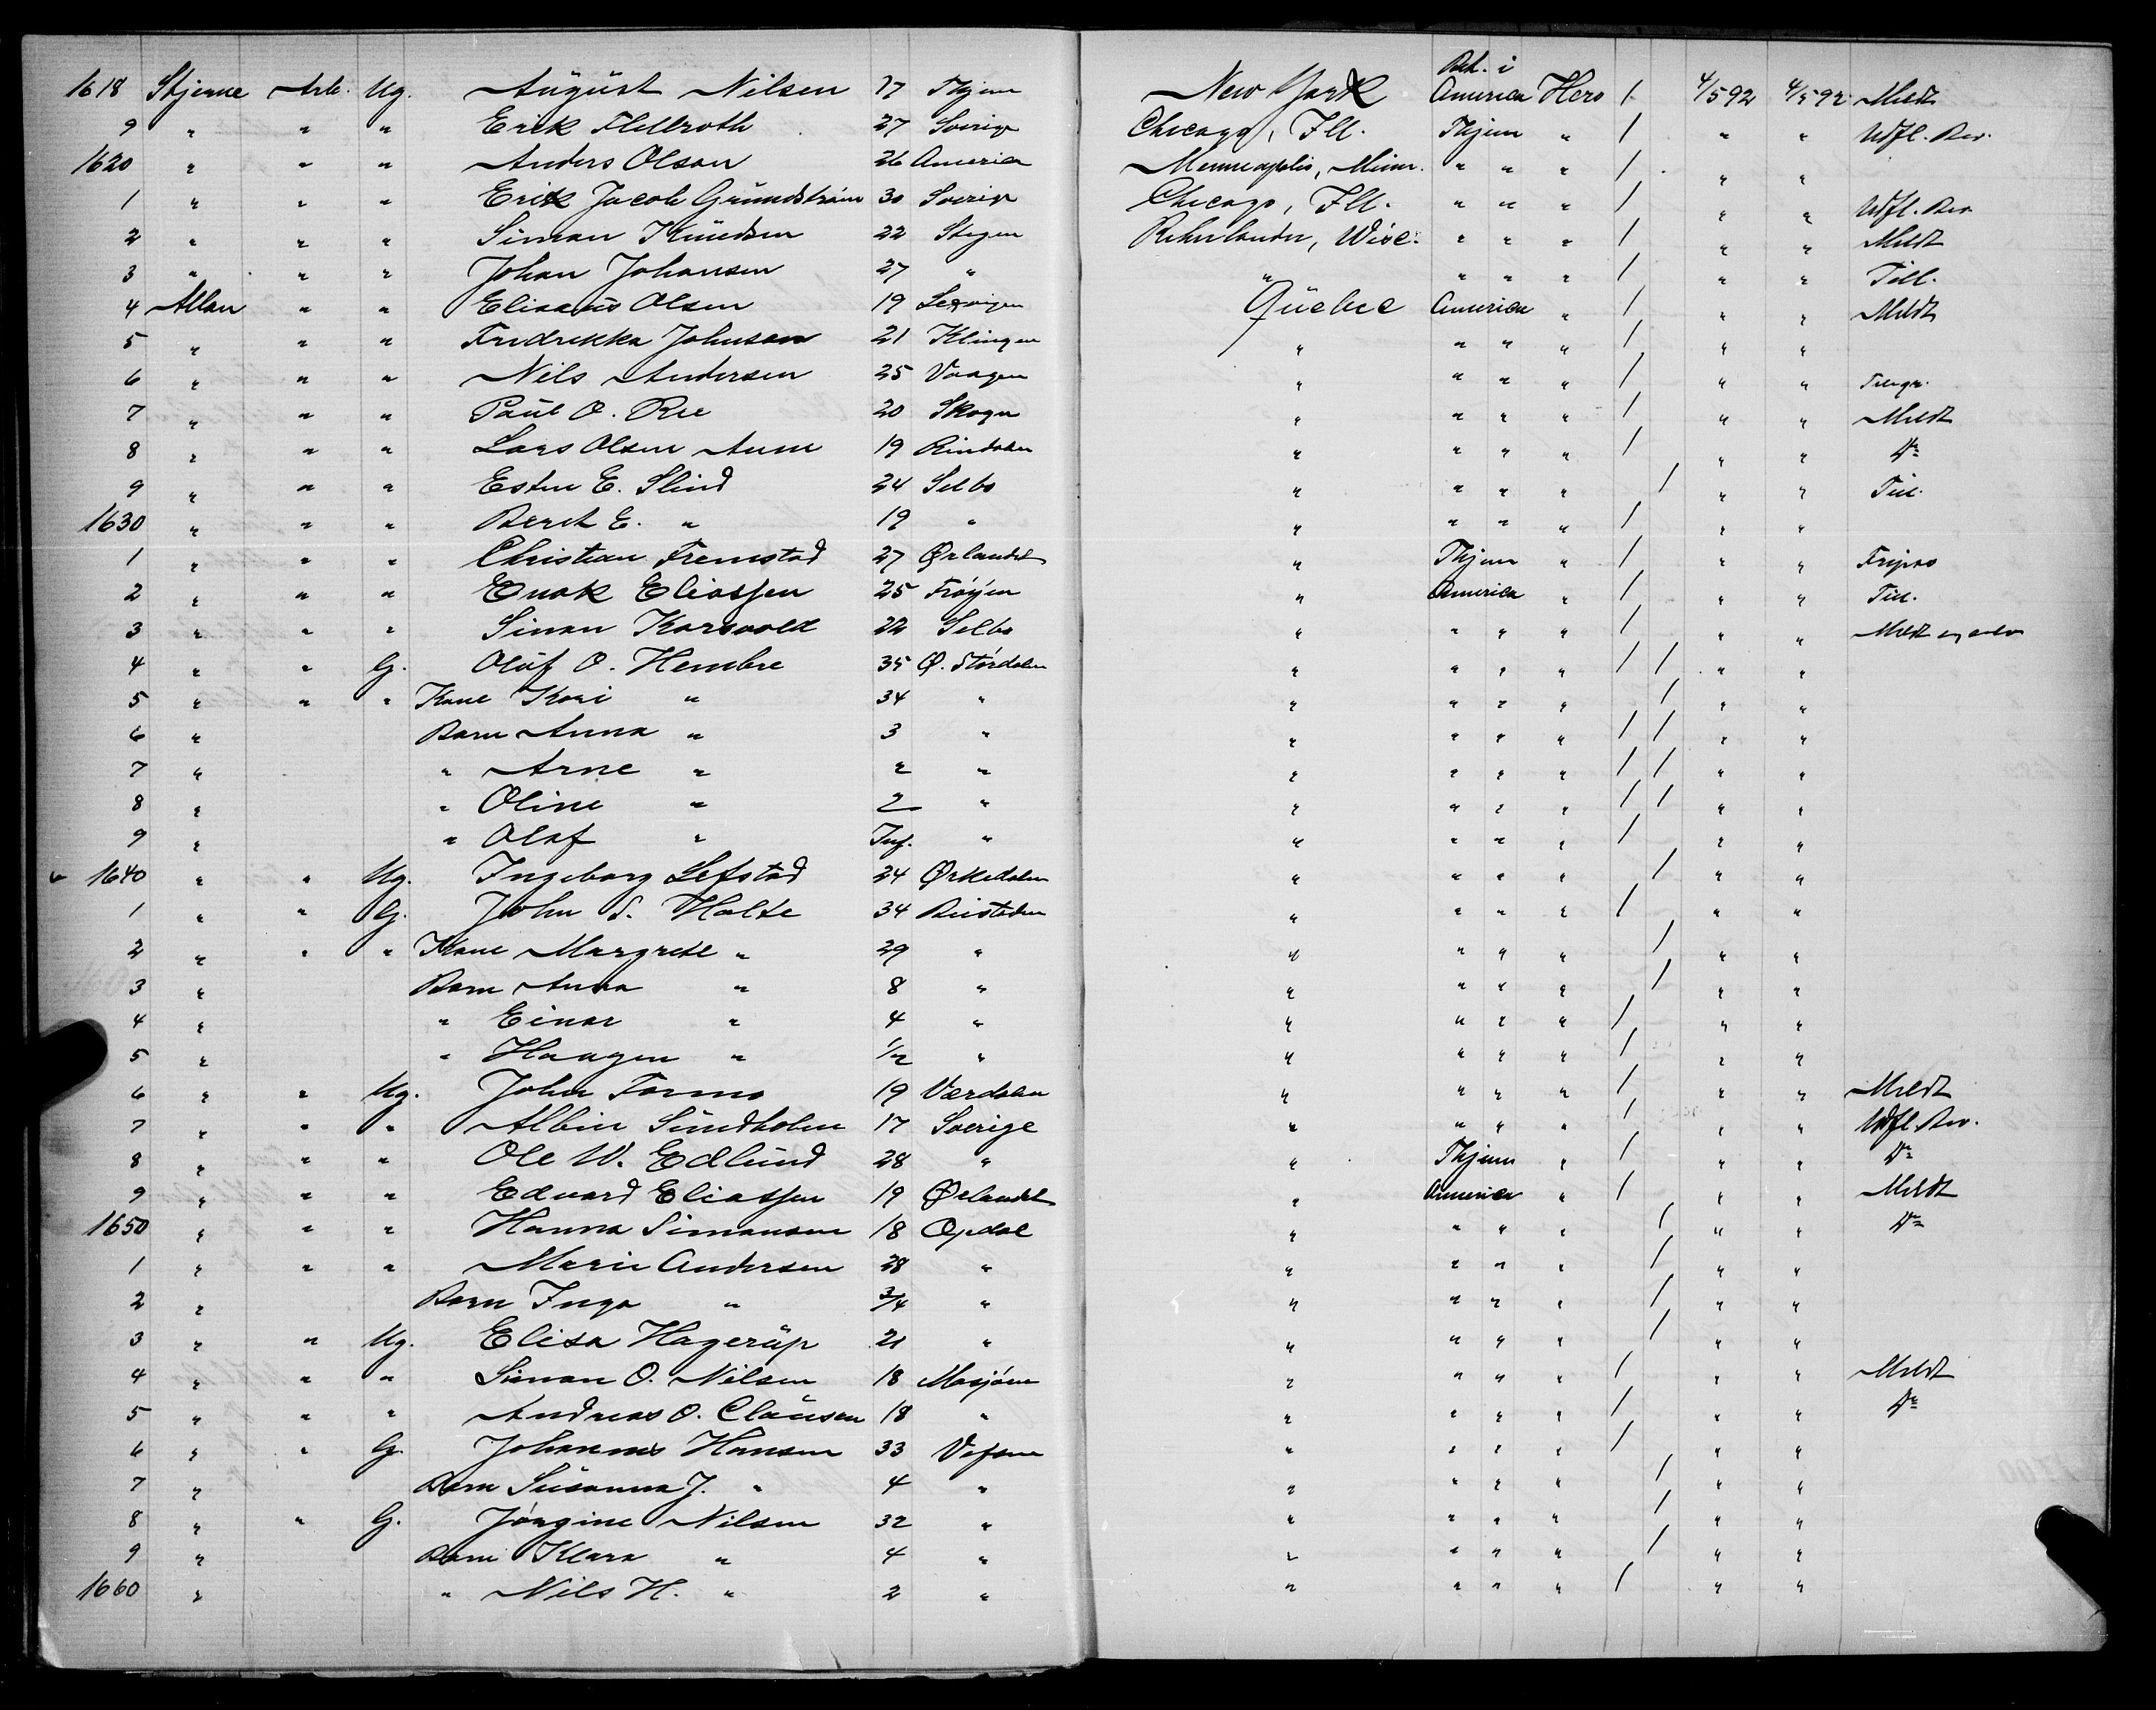 Bet. i
1618 Stjerne Arb. Ug. August Nilsen 17 Thjem New York America Hero 1 4/5 92 4/5 92 Meldt
9 " " " Erik Hellroth 27 Sverig Chicago, Ill. Thjem " 1 " " Udfl. Bev.
1620 " " " Anders Olson 26 America Minneapolis, Minn. " " " 1 " "
1 " " " Erik Jacob Grundström 30 Sverig Chicago, Ill. " " " 1 " " Udfl. Bev.
2 " " " Simon Knudsen 22 Stegen Rhinlander, Wisc. " " " 1 " " Meldt
3 " " " Johan Johansen 27 " " " " " 1 " " Till.
4 Allan " " Elisæus Olsen 19 Quebec America " 1 " " Meldt
5 " " " Fredrikka Johnson 21 Klingen " " " " 1 " "
6 " " " Nils Andersen 25 Vaagen " " " " 1 " "
7 " " " Paul O. Ree 20 Skogn " " " " 1 " " Meldt
8 " " " Lars Olsen Aune 19 Rindalen " " " " 1 " " Do
9 " " " Esten E. Slind 24 Selbo " " " " 1 " " Till.
1630 " " " Beret E. " 19 " " " " " 1 " "
1 " " " Christian Fremstad 27 Ørlandet " Thjem " 1 " " Fripas
2 " " " Enok Eliassen 25 Frøyen " America " 1 " " Till.
3 " " " Simon Karsvold 22 Selbo " " " " 1 " " Meldt
4 " " G. Oluf O. Hembre 35 Ø. Størdalen " " " " 1 1 " "
5 " " " Kone Kari " 34 " " " " " 1 " "
6 " Barn Anna " 3 " " " " " 1 1 " "
7 " " Arne " " " " " " " 1 1 " "
8 " " Oline " 2 " " " " " 1 1 " "
9 " " Olaf " Inf. " " " " " 1 " "
1640 " " Ug. Ingeborg Lefstad 24 Ørkedalen " " " " 1 " "
1 " " G. John S. Holte 34 Beistaden " " " " 1 " "
2 " " " Kone Margrete " 29 " " " " " 1 " "
3 " Barn Anna " 8 " " " " " 1 " "
4 " " Einar " 4 " " " " " 1 " "
5 " " Haagen " 1/2 " " " " " 1 " "
6 " " Ug. John Formo 19 Værdalen " " " " 1 " " Meldt
7 " " " Albin Sundholm 17 Sverige " " " " 1 " " Udfl. Bev.
8 " " " Ole W. Edlund 28 " " Thjem " 1 " " Do
9 " " " Edvard Eliassen 19 Ørlandet " America " 1 " " Meldt
1650 " " " Hanna Simonsen 18 Opdal " " " " 1 " " Do
1 " " " Marie Andersen 28 " " " " " 1 " "
2 " Barn Inga " 3/4 " " " " " 1 " "
3 " " Ug. Elisa Hagerup 21 " " " " " 1 " "
4 " " " Simon O. Nilsen 18 Mosjøen " " " " 1 " " Meldt
5 " " " Andreas O. Clausen 18 " " " " " 1 " " Do
6 " " G. Johannes Hansen 33 Vefsen " " " " 1 " "
7 " Barn Susanna J. " 4 " " " " " 1 " "
8 " " G. Jørgine Nilsen 32 " " " " " 1 " "
9 " Barn Klara " 4 " " " " " 1 " "
1660 " " Nils H. " 2 " " " " " 1 " "